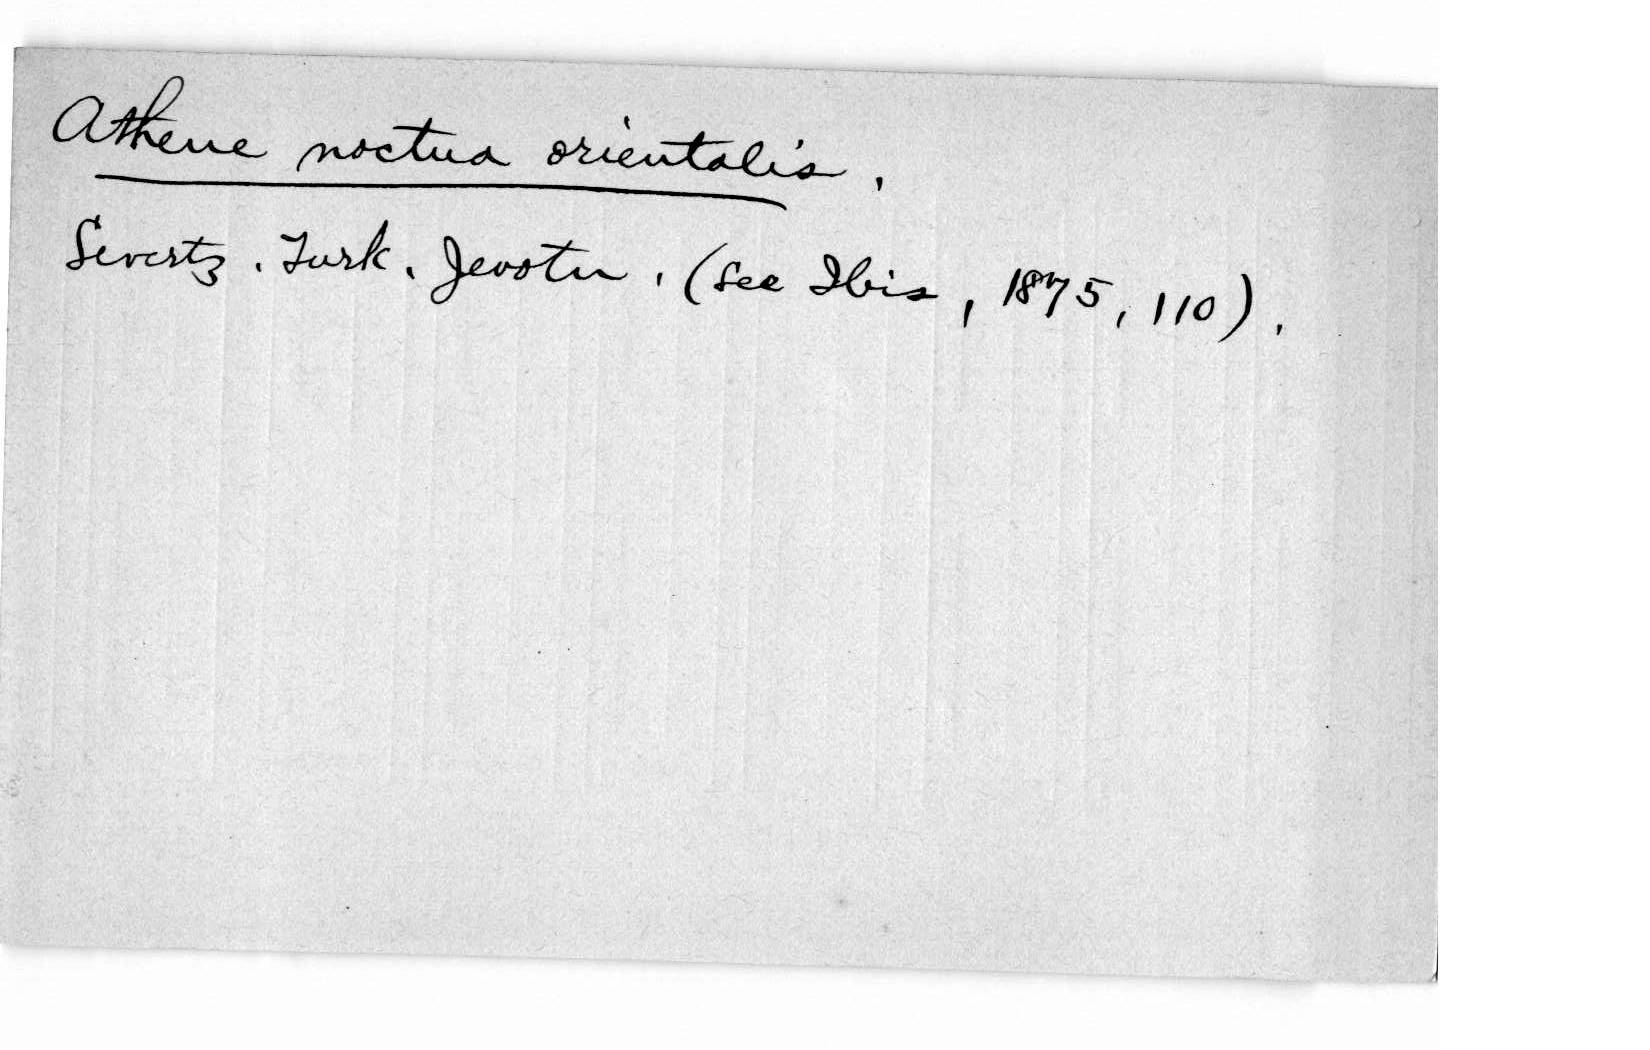 Athene noctua orientalis.
Severtz. Turk. Jevotn. (see Ibis, 1875, 110).